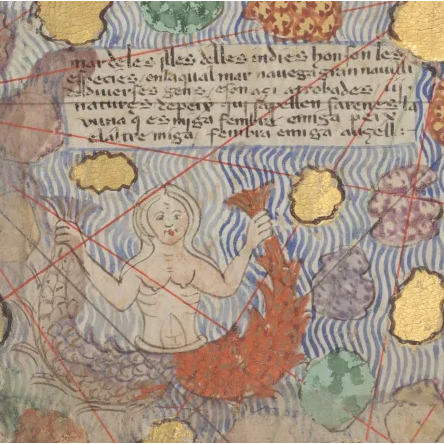 mar de les illes delles indies hon son les
especies / en la qual mar navega gran navili
de diverses gens / e son açi atrobades iij
natures de peix qui sapellen sarenes la
vuna q es miga fembra e miga peix
e laltre miga fembra e miga auzell :